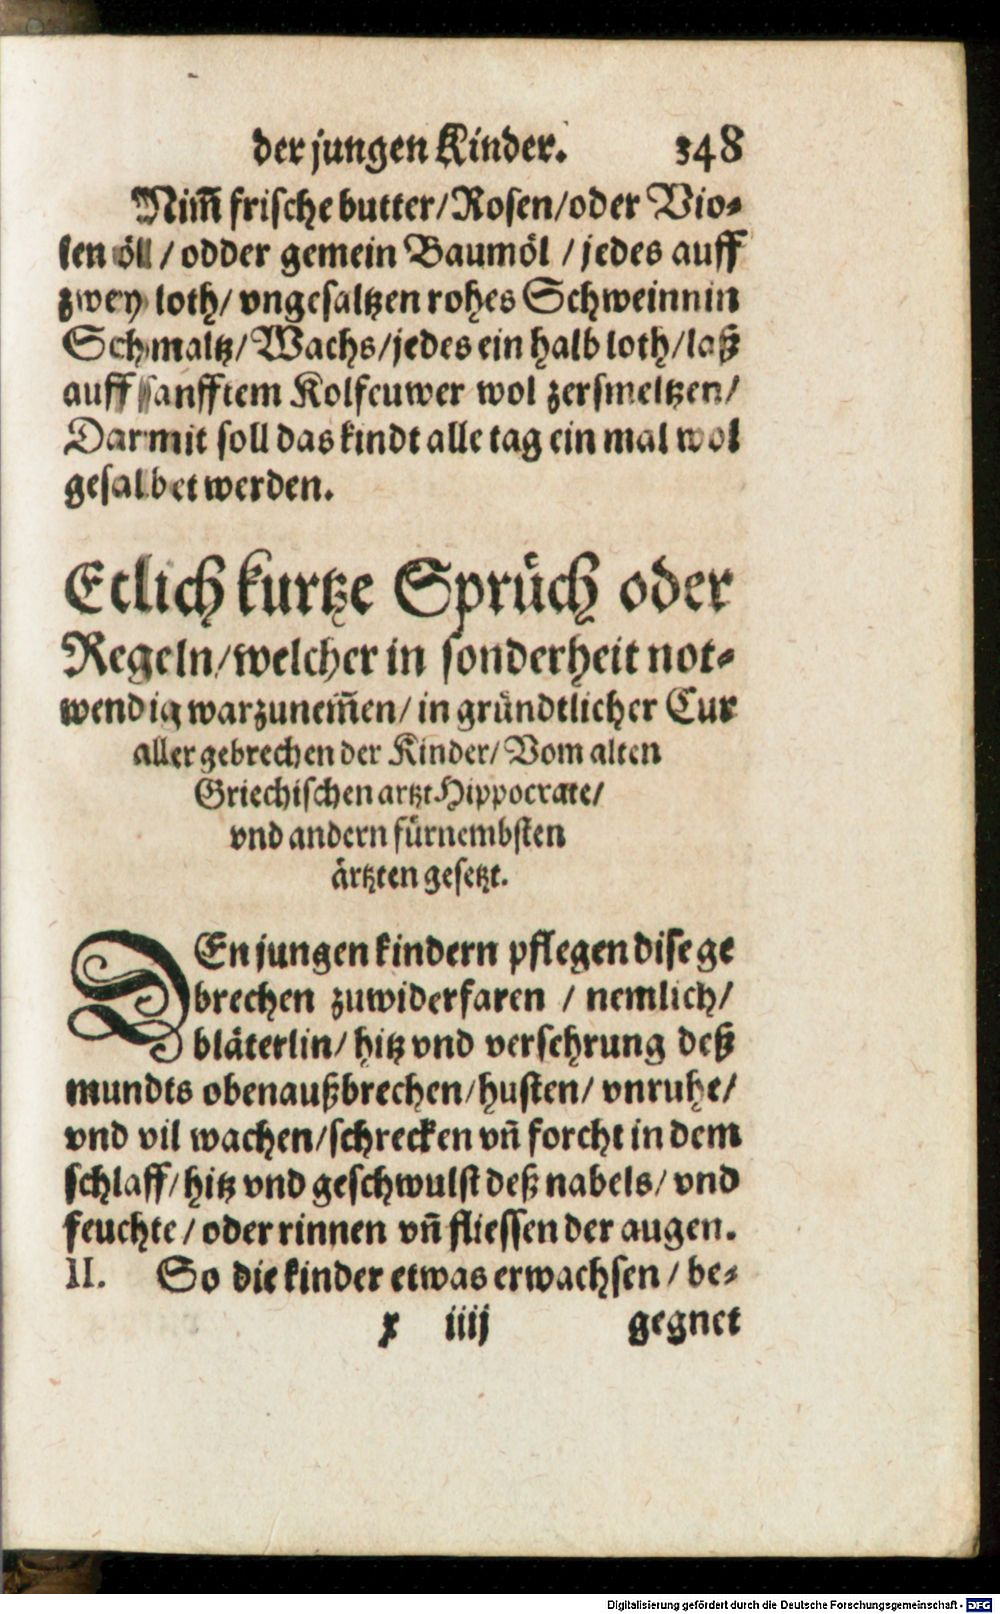 der jungen Kinder. 348
Nim̃ frische butter/Rosen/oder Vio⸗
len öll / odder gemein Baumöl / jedes auff
zwey loth/ vngesaltzen rohes Schweinnin
Schmaltz/ Wachs/jedes ein halb loth/laß
auff sanfftem Kolfeuwer wol zersmeltzen/
Darmit soll das kindt alle tag ein mal wol
gesalbet werden.
Etlich kurtze Sprüch oder
Regeln/welcher in sonderheit not⸗
wendig warzunem̃en/ in gründtlicher Cur
aller gebrechen der Kinder/ Vom alten
Griechischen artzt Hippocrate/
vnd andern fürnembsten
ärtzten gesetzt.
DEn jungen kindern pflegen dise ge
brechen zuwiderfaren / nemlich/
bläterlin/ hitz vnd versehrung deß
mundts obenaußbrechen/husten/ vnruhe/
vnd vil wachen/schrecken vñ forcht in dem
schlaff/hitz vnd geschwulst deß nabels/ vnd
feuchte / oder rinnen vñ fliessen der augen.
II. So die kinder etwas erwachsen / be⸗
x iiij gegnet
Digitalisierung gefördert durch die Deutsche Forschungsgemeinschaft - DFG